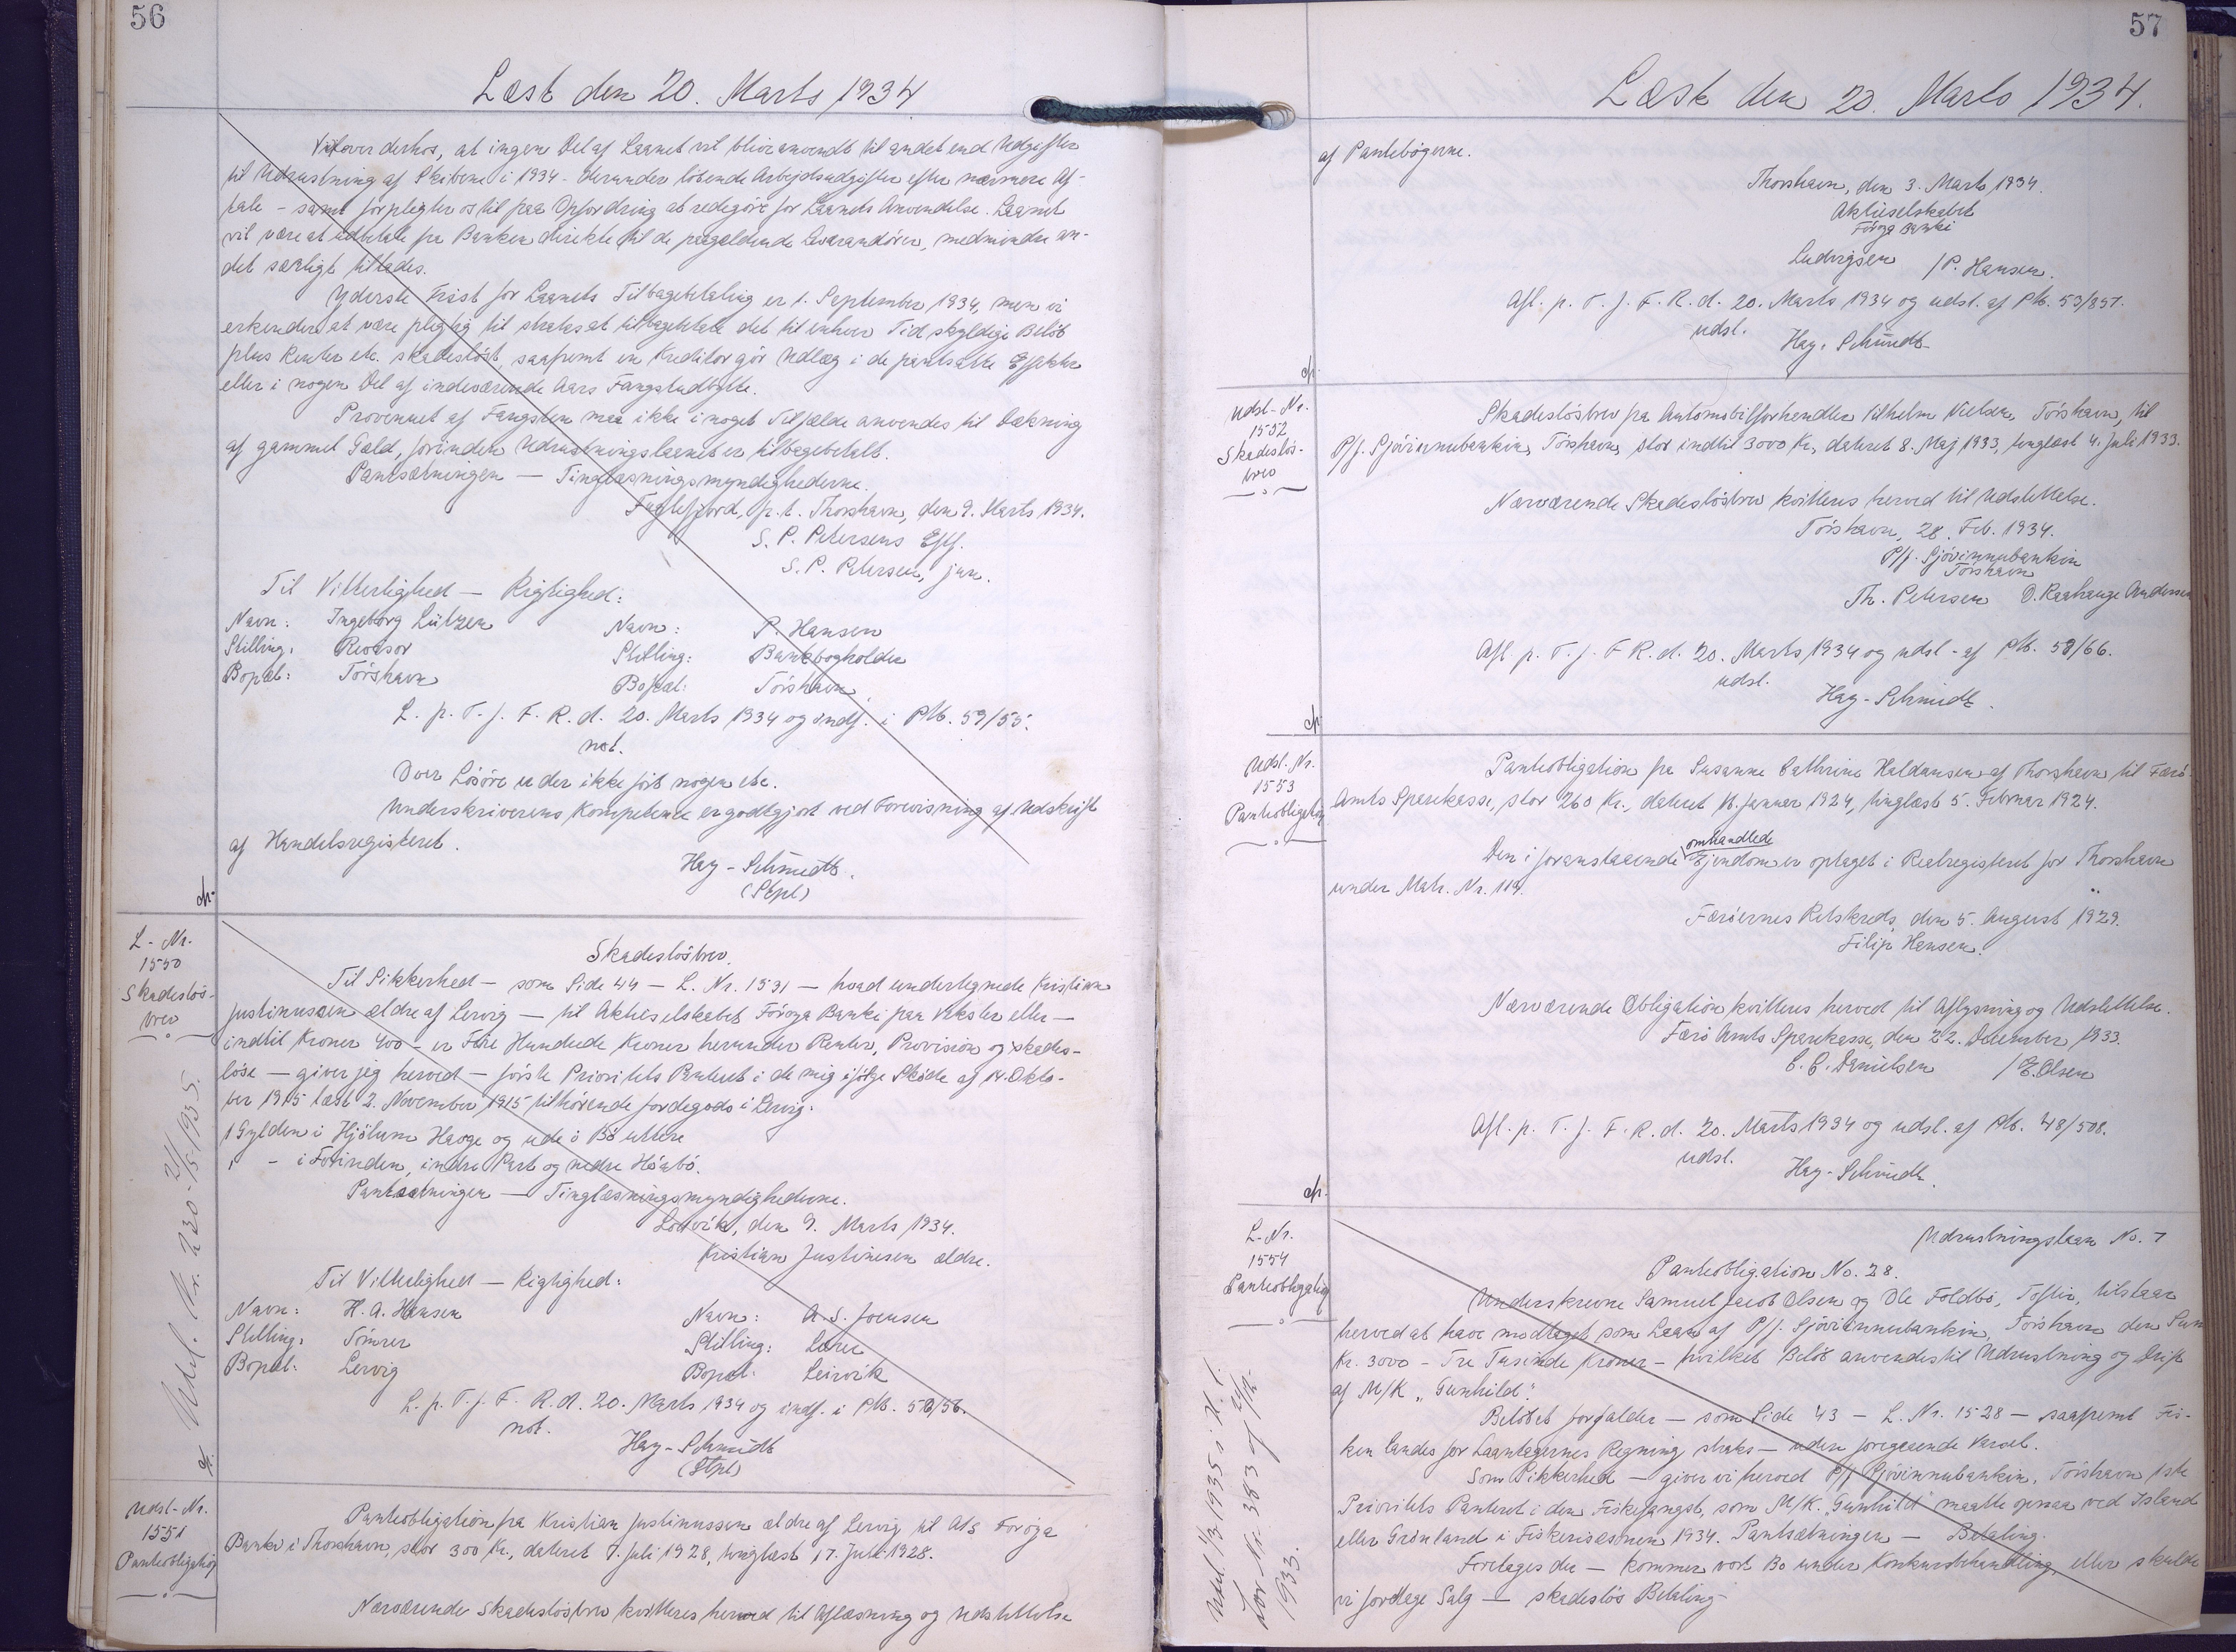 56
Læst den 20. Marts 1934
derhos, at ingen Del af Laanet vil blive anvendt til andet end Udgifter
til Udrustning af Skibene i 1934 - derunder löbende Arbejdsudgifter efter nærmere Af-
tale - samt forpligter os til paa Opfordring at redegöre for Laanets Anvendelse. Laanet
vil være at udbetale fra Banken direkte til de pågældende Leverandörer, medmindre an-
det særligt tillades.
Yderste Frist for Laanets Tilbagebetaling er 1. September 1934, men vi
erkender at være pligtig til straks at tilbagebetale det til enhver Tid skyldige Belöb
plus Renter etc. skadeslöst, saafremt en Kreditor gör Udlæg i de pantsatte Effekter
eller i nogen Del af indeværende Aars Fangstudbytte.
Provenuet af Fangsten maa ikke i noget Tilfælde anvendes til Dækning
af gammel Gæld, forinden Udrustningslaanet er tilbagebetalt.
Pantsætningen — Tinglæsningsmyndighederne.
Fuglefjord, p.t. Thorshavn, den 9. Marts 1934.
S. P. Petersens Eftf.
S. P. Petersen, jun.
Til Vitterlighed — Rigtighed:
Navn: Ingeborg Lützen Navn: P. Hansen
Stilling: Revisor Stilling: Bankbogholder
Bopæl: Tórshavn Bopæl: Tórshavn
L. p. T. f. F. R. d. 20. Marts 1934 og indf. i Ptb. 59/55.
not.
Over Lösöre er der ikke fört nogen etc.
Underskriverens Kompetence er godtgjort ved Forevisning af Udskrift
af Handelsregisteret.
Hay-Schmidt.
(Stpl)
L-Nr.
1550
Skadeslös-
brev
Udsl. Nr. 230 - 21/5-1935.
Skadeslösbrev.
Til Sikkerhed — som Side 44 — L. Nr. 1531 — hvad undertegnede Kristian
Justinussen ældre af Lervig — til Aktieselskabet Föroya Banki paa Veksler eller —
indtil Kroner 400 - er Fire Hundrede Kroner herunder Renter, Provision og skades-
löse — giver jeg herved — förste Prioritets Panteret i de mig ifölge Sköde af 14. Okto-
ber 1915 læst 2. November 1915 tilhörende Jordegods i Lervig:
1 Gylden i Hjölum Hauge og ude i Bö uttere
1 - i indre Part og nedre
Pantsætningen — Tinglæsningsmyndighederne.
den 9. Marts 1934.
Kristian Justinesen ældre.
Til Vitterlighed — Rigtighed:
Navn: H. A. Hansen Navn: A. S. Joensen
Stilling: Tömrer Stilling: Lærer
Bopæl: Lervig Bopæl: Leirvík
L. p. T. f. F. R. d. 20. Marts 1934 og indf. i Ptb. 58/56.
not.
Hay-Schmidt
(Stpl)
Udsl-Nr.
1551
Panteobligation
Panteobligation fra Kristian Justinussen ældre af Lervig til A/S Foroya
Banki i Thorshavn, stor 300 Kr., dateret 7. Juli 1928, tinglæst 17. Juli 1928.
Nærværende Skadeslösbrev kvitteres herved til Aflæsning og Udslettelse
57
Læst den 20. Marts 1934.
af Pantebögerne.
Thorshavn, den 3. Marts 1934.
Aktieselskabet
Föroya Banki
Ludvigsen /P. Hansen.
Afl. p. T. f. F. R. d. 20. Marts 1934 og udsl. af Ptb. 53/857.
udsl.
Hay-Schmidt
Udsl-Nr.
1552
Skadeslös-
brev
Skadeslösbrev fra Automobilforhandler Vilhelm Nielsen, Tórshavn, til
P/f. Sjóvinnubankin, Tórshavn, stor indtil 3000 Kr., dateret 8. Maj 1933, tinglæst 4. Juli 1933.
Nærværende Skadeslösbrev kvitteres herved til Udslettelse.
Tórshavn, 28. Feb. 1934.
P/f. Sjóvinnubankin
Tórshavn
Th. Petersen D. Raahauge Andersen
Afl. p. T. f. F. R. d. 20. Marts 1934 og udsl. af Ptb. 58/66.
udsl.
Hay-Schmidt.
Udsl. Nr.
1553
Panteobligation
Panteobligation fra Susanne Cathrine Haldansen af Thorshavn til Færö
Amts Sparekasse, stor 260 Kr., dateret 16. Januar 1924, tinglæst 5. Februar 1924.
omhandlede
Den i foranstaaende Ejendom er optaget i Realregisteret for Thorshavn
under Matr. Nr. 114.
Færöernes Retskreds, den 5. August 1929.
Filip Hansen.
Nærværende Obligation kvitteres herved til Aflysning og Udslettelse.
Færö Amts Sparekasse, den 22. December 1933.
C. C. Danielsen /E. Olsen
Afl. p. T. f. F. R. d. 20. Marts 1934 og udsl. af Ptb. 48/508.
udsl.
Hay-Schmidt.
L-Nr.
1554
Panteobligation
1933.
Udrustningslaan No. 7
Panteobligation No. 28.
Underskrevne Samuel Jacob Olsen og Ole Foldbó, Toftir, tilstaar
herved at have modtaget som Laan af P/f. Sjóvinnubankin, Tórshavn den Sum
Kr. 3000 - Tre Tusinde Kroner - hvilket Belöb anvendes til Udrustning og Drift
af M/K „Gunhild".
Belöbet forfalder — som Side 43 — L. Nr. 1528 — saafremt Fis-
ken landes for Laantagernes Regning straks — uden foregaaende Varsel.
Som Sikkerhed — giver vi herved P/f Sjóvinnubankin, Tórshavn 1ste
Prioritets Panteret i den Fiskefangst, som M/K. „Gunhild" maatte opnaa ved Island
eller Grönland i Fiskerisæsonen 1934. Pantsætningen — Betaling.
Foretages der — kommer vort Bo under Konkursbehandling, eller skulde
vi foretage Salg — skadeslös Betaling -